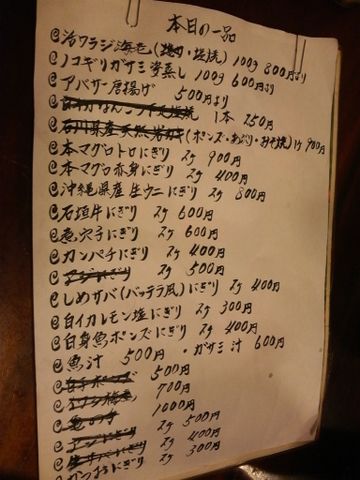 本日の一品
@活ワラジ海老(・塩焼) 100g 800円より
@ノコギリガザミ姿蒸し 100g 600円より
@アバサー唐揚げ 500円より
@ 塩焼 1本 250円
@石川県産天然岩ガキ(ポンズ・あぶり・)1ケ 900円
@本マグロトロにぎり 2ケ 900円
@本マグロ赤身にぎり 2ケ 400円
@沖縄県産生ウニにぎり 2ケ 800円
@石垣牛にぎり 2ケ 600円
@煮穴子にぎり 2ケ 600円
@カンパチにぎり 2ケ 400円
@アジにぎり 2ケ 500円
@しめサバ(バッテラ風)にぎり 2ケ 400円
@白イカレモン塩にぎり 2ケ 300円
@白身魚ポンズにぎり 2ケ 400円
@魚汁 500円 ・ガザミ汁 600円
@ポンズ 500円
@イワシ 700円
@亀の手 1000円
@にぎり 2ケ 500円
@にぎり 2ケ 400円
@かつおにぎり 2ケ 300円